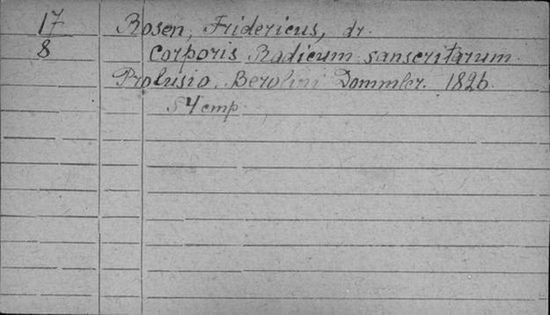 17 Rosen, Fridericus, dr.
8 Corporis Radicum sanscritarum
Prolusio. Berolini Dommler. 1826.
54 стр